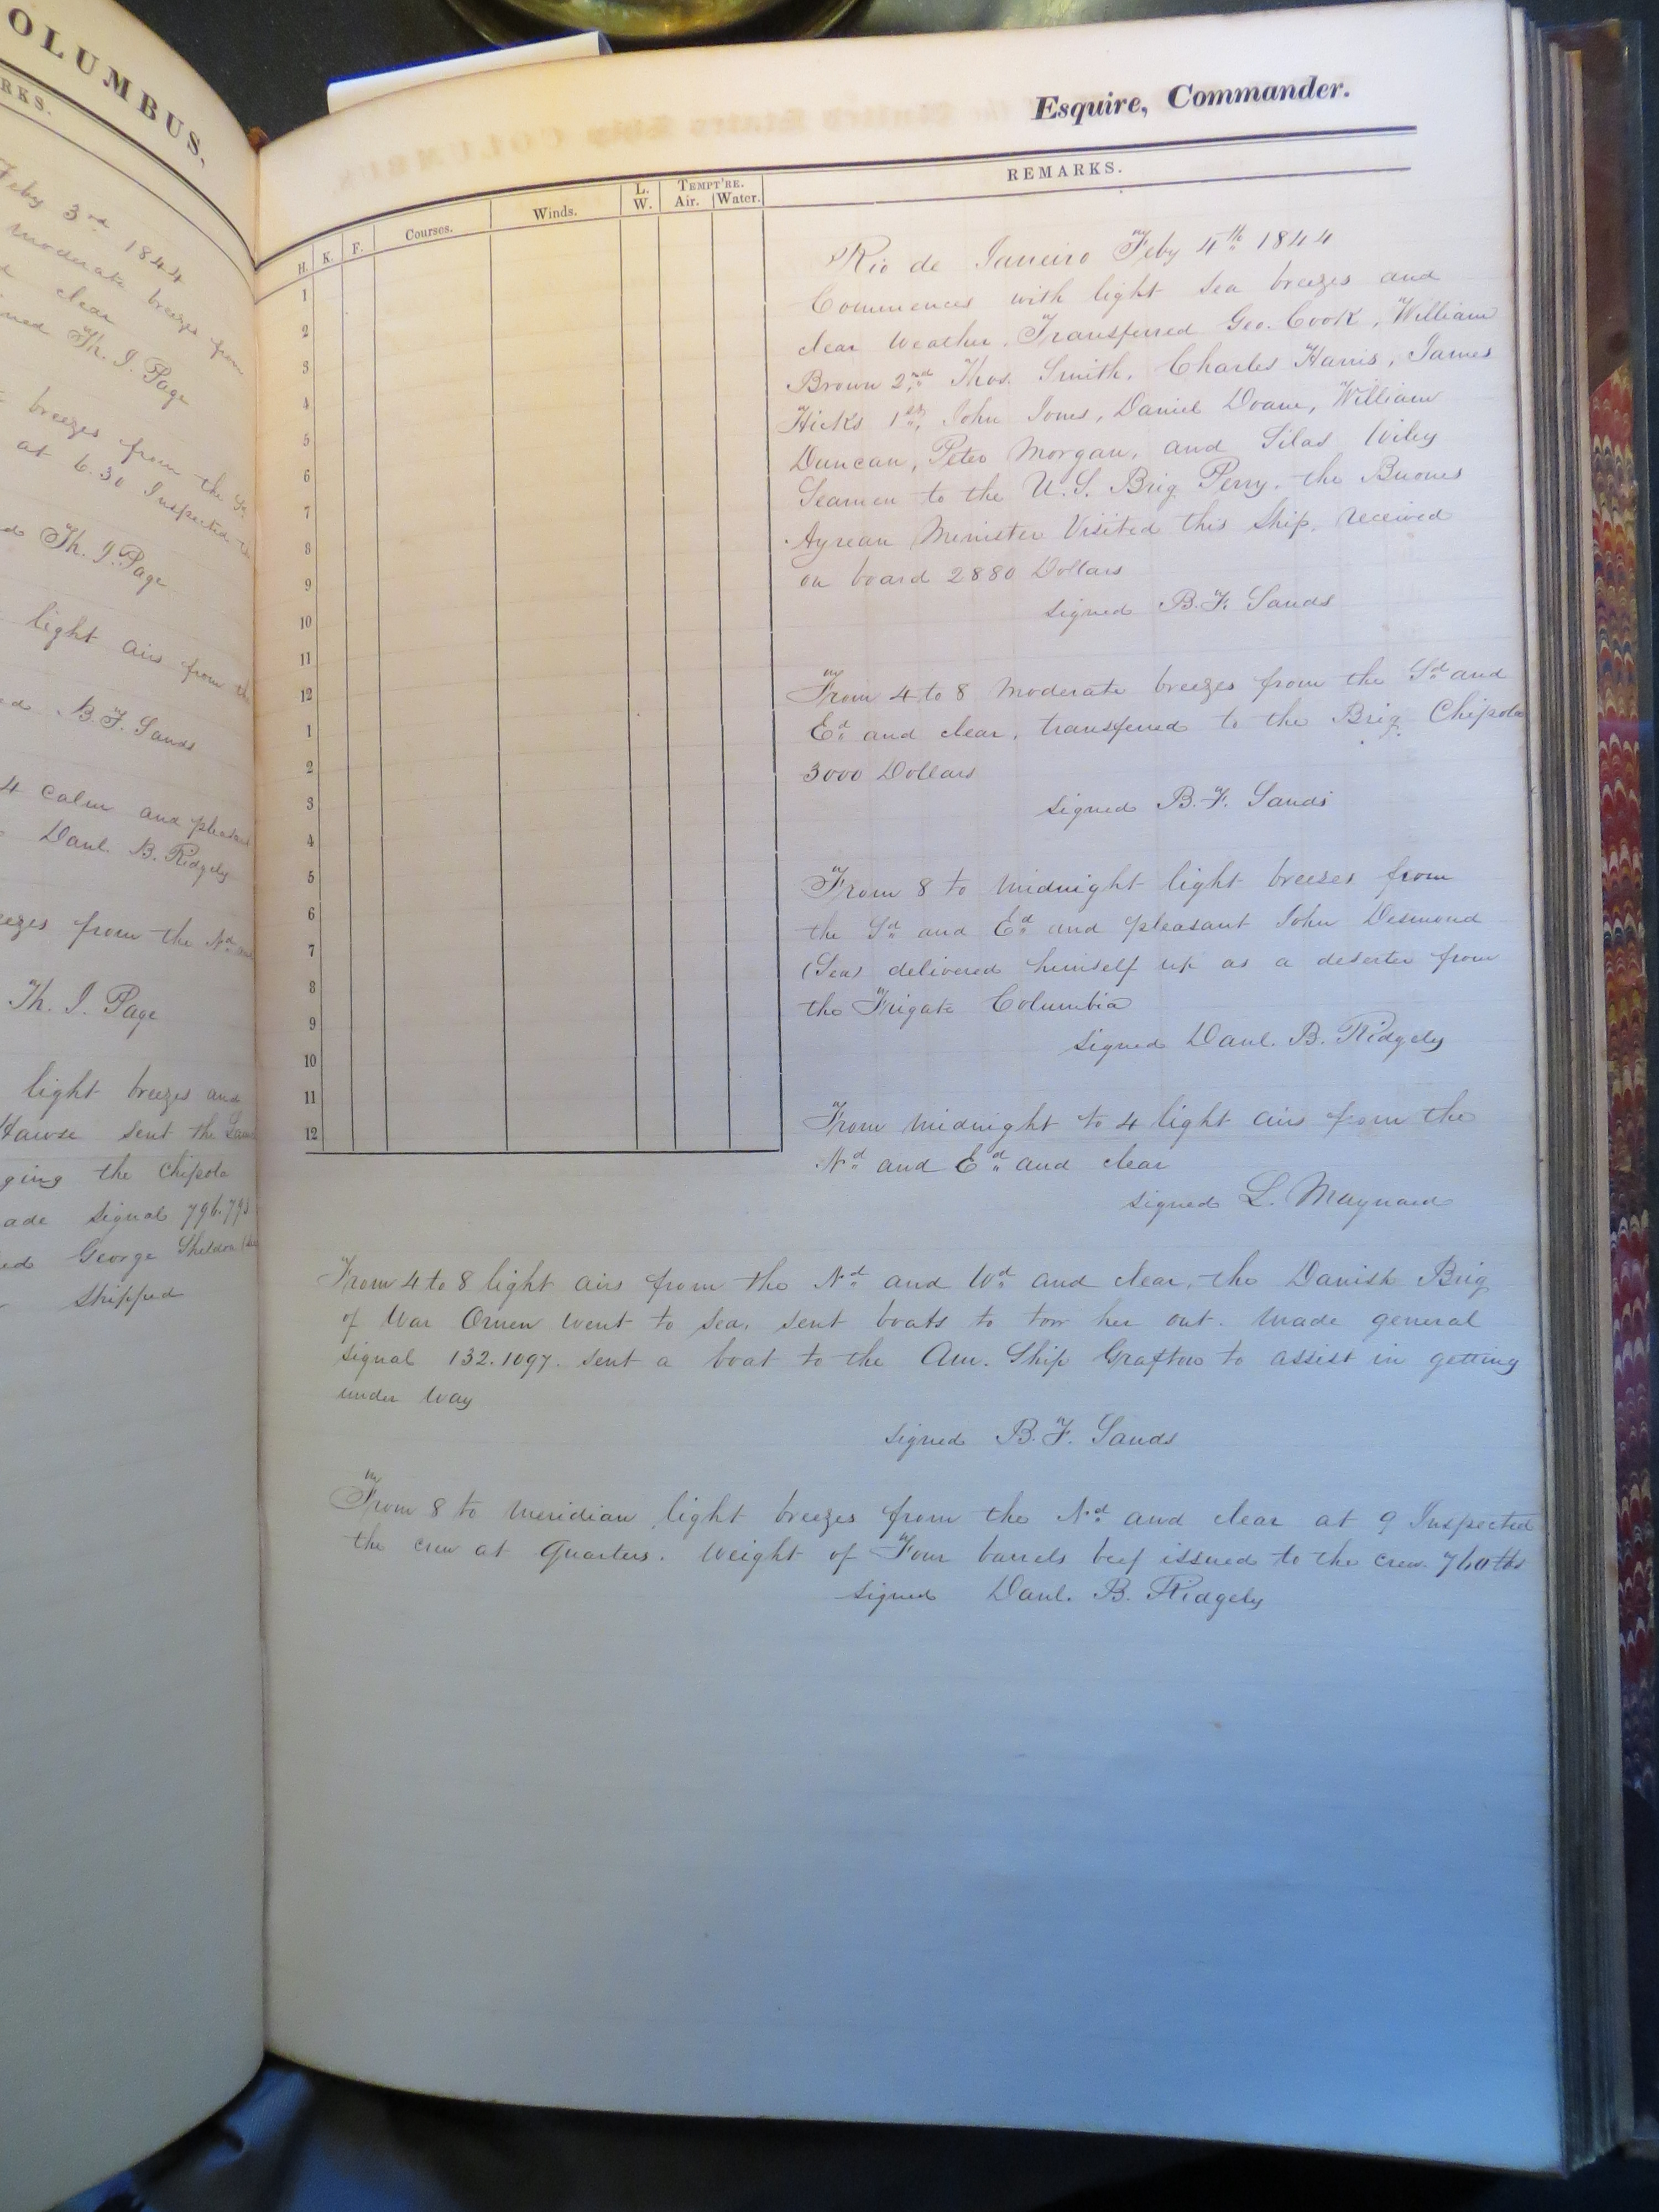 OLUMBUS.
RKS.
Feby 3rd 1844
moderate breezes from
clear
Th. J. Page
breezes from the
at 6.30 Inspected the
Th. J. Page
light airs from the
B. F. Sands
4 Calm and pleasant
Danl. B. Ridgely
from the Nd and
Th. J. Page
light breezes and
Hawse sent the
ging the Chipola
ade signal 796.795
George Sheldon
shipped
Esquire, Commander.
H. K. F. Courses. Winds. L. W. TEMPT'RE. Air. Water. REMARKS.
1
2
3
4
5
6
7
8
9
10
11
12
1
2
3
4
5
6
7
8
9
10
11
12
Rio de Janeiro Feby 4th 1844
Commences with light sea breezes and
clear weather. Transferred Geo. Cook, William
Brown 2nd Thos. Smith, Charles Harris, James
Hicks 1st, John Jones, Daniel Doane, William
Duncan, Peter Morgan, and Silas Wiley
Seamen to the U.S. Brig Perry. the Buenos
Ayrean Minister Visited this Ship. received
on board 2880 Dollars
signed B. F. Sands
From 4 to 8 moderate breezes from the Sd and
Ed and clear, transferred to the Brig Chipola
3000 Dollars
signed B. F. Sands
From 8 to midnight light breezes from
the Sd and Ed and pleasant John Desmond
(Sea) delivered himself up as a deserter from
the Frigate Columbia
signed Danl. B. Ridgely
From midnight to 4 light airs from the
Nd and Ed and clear
signed L. Maynard
From 4 to 8 light airs from the Nd and Wd and clear, the Danish Brig
of War Ornen went to sea, sent boats to tow her out. made general
signal 132.1097. sent a boat to the Am. Ship Grafton to assist in getting
under way
signed B. F. Sands
From 8 to meridian light breezes from the Nd and clear at 9 Inspected
the crew at Quarters. Weight of Four barrels beef issued to the crew 760 lbs
signed Danl. B. Ridgely